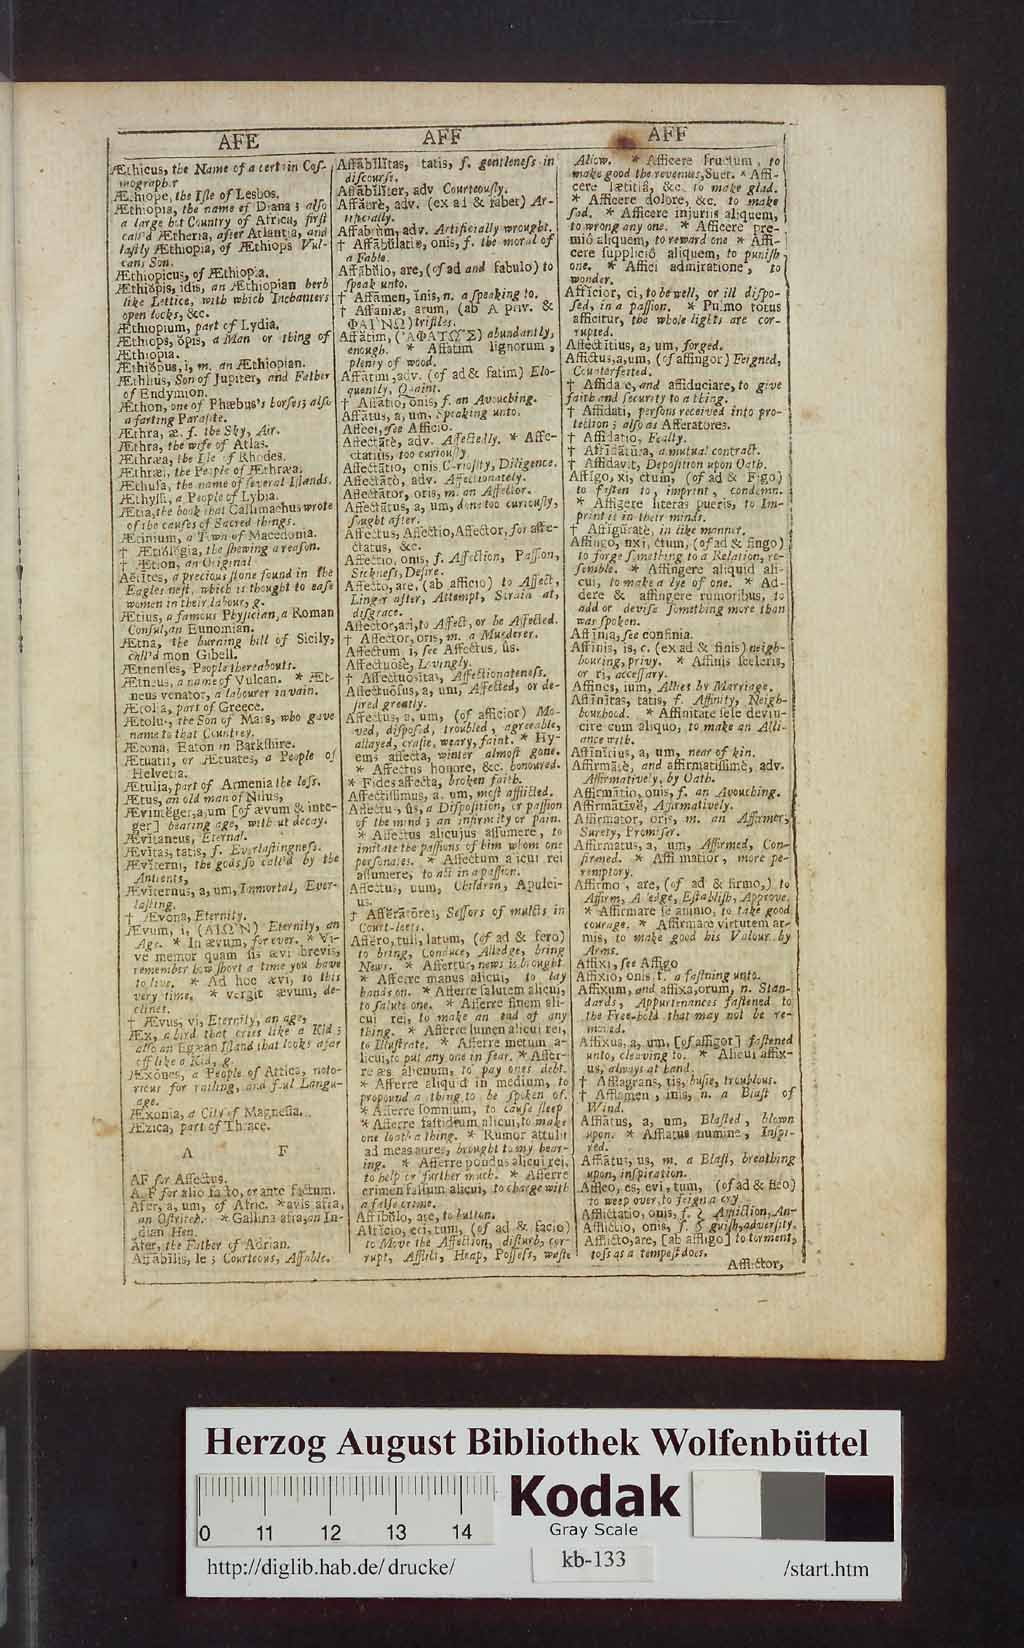 AFE
Æthicus, the Name of a certain Cos-
mographer
Æthiope, the Isle of Lesbos.
Æthiopia, the name of Diana; also
a large hot Country of Africa, first
call'd Ætheria, after Atlantia, and
lastly Æthiopia, of Æthiops Vul-
cans Son.
Æthiopicus, of Æthiopia.
Æthiŏpis, idis, an Æthiopian herb
like Lettice, with which Inchanters
open locks, &c.
Æthiopium, part of Lydia.
Æthiops, ŏpis, a Man or thing of
Æthiopia.
Æthiŏpus, i, m. an Æthiopian.
Æthlius, Son of Jupiter, and Father
of Endymion.
Æthon, one of Phæbus's horses; also
a farting Parasite.
Æthra, æ. f. the Sky, Air.
Æthra, the wife of Atlas.
Æthræa, the Isle of Rhodes.
Æthræi, the People of Æthræa.
Æthusa, the name of several Islands.
Æthyssi, a People of Lybia.
Ætia, the book that Callimachus wrote
of the causes of Sacred things.
Ætinium, a Town of Macedonia.
† Ætiŏlŏgia, the shewing a reason.
† Ætion, an Original
Aëtītes, a precious stone found in the
Eagles nest, which is thought to ease
women in their labour, g.
Ætius, a famous Physician, a Roman
Consul, an Eunomian.
Ætna, the burning hill of Sicily,
call'd mon Gibell.
Ætnenses, People thereabouts.
Ætneus, a name of Vulcan. * Æt-
neus venator, a labourer in vain.
Ætolia, part of Greece.
Ætolus, the Son of Mars, who gave
name to that Countrey.
Ætona, Eaton in Barkshire.
Ætuatii, or Ætuates, a People of
Helvetia.
Ætulia, part of Armenia the less.
Ætus, an old man of Nilus,
Ævintĕger, a, um [of ævum & inte-
ger] bearing age, without decay.
Ævitaneus, Eternal.
Ævĭtas, tatis, f. Everlastingness.
Ævĭterni, the gods so call'd by the
Antients,
Ævĭternus, a, um, Immortal, Ever-
lasting.
† Ævona, Eternity.
Ævum, i, (ΑΙΩ'Ν) Eternity, an
Age. * In ævum, for ever. * Vi-
ve memor quam sis ævi brevis,
remember how short a time you have
to live. * Ad hoc ævi, to this
very time, * vergit ævum, de-
clines.
† Ævus, vi, Eternity, an age,
Æx, a bird that cries like a Kid;
also an Egæan Island that looks afar
off like a Kid, g.
Æxōnes, a People of Attica, noto-
rious for railing, and foul Langu-
age.
Æxonia, a City of Magnesia.
Æzica, part of Thrace.
A F
AF for Affectus.
A. F for alio facto, or ante factum.
Afer, a, um, of Afric. * avis afra,
an Ostritch. * Gallina afra, an In-
dian Hen.
Āter, the Father of Adrian.
Affābĭlis, le; Courteous, Affable.
AFF
Affābĭlĭtas, tatis, f. gentleness in
discourse.
Affābĭlĭter, adv Courteously.
Affăbrè, adv. (ex ad & faber) Ar-
tificially.
Affabrum, adv. Artificially wrought.
† Affābŭlatio, onis, f. the moral of
a Fable.
Affābŭlo, are, (of ad and fabulo) to
speak unto.
† Affāmen, ĭnis, n. a speaking to.
† Affaniæ, arum, (ab A priv. &
ΦΑΙ'ΝΩ) trifles.
Affătim, ('ΑΦΑΤΩ͂Σ) abundantly,
enough. * Affatim lignorum,
plenty of wood.
Affātim, adv. (of ad & fatim) Elo-
quently, Quaint.
† Affātio, ōnis, f. an Avouching.
Affātus, a, um, speaking unto.
Affeci, see Afficio.
Affectātè, adv. Affectedly. * Affe-
ctatius, too curiously.
Affectātio, onis, Curiosity, Diligence.
Affectātò, adv. Affectionately.
Affectātor, oris, m. an Affector.
Affectātus, a, um, done too curiously,
sought after.
Affectus, Affectio, Affector, for affe-
ctatus, &c.
Affectio, onis, f. Affection, Passion,
Sickness, Desire.
Affecto, are, (ab afficio) to Affect,
Linger after, Attempt, Strain at,
disgrace.
Affector, ari, to Affect, or be Affected.
† Affector, oris, m. a Murderer.
Affectum, i, see Affectus, ûs.
Affectuosè, Lovingly.
† Affectuositas, Affectionateness.
Affectuōsus, a, um, Affected, or de-
sired greatly.
Affectus, a, um, (of afficior) Mo-
ved, disposed, troubled, agreeable,
allayed, crasie, weary, faint. * Hy-
ems affecta, winter almost gone.
* Affectus honore, &c. honoured.
* Fides affecta, broken faith.
Affectissimus, a, um, most afflicted.
Affectus, ûs, a Disposition, or passion
of the mind; an infirmity or pain.
* Affectus alicujus assumere, to
imitate the passions of him whom one
personates. * Affectum alicui rei
assumere, to act in a passion.
Affectus, uum, Children, Apulei-
us.
† Affĕrātōres, Sessors of mulcts in
Court-leets.
Affĕro, tuli, latum, (of ad & fero)
to bring, Conduce, Alledge, bring
News. * Affertur, news is brought.
* Afferre manus alicui, to lay
hands on. * Afferre salutem alicui,
to salute one. * Afferre finem ali-
cui rei, to make an end of any
thing. * Afferre lumen alicui rei,
to Illustrate. * Afferre metum a-
licui, to put any one in fear. * Affer-
re æs alienum, to pay ones debt.
* Afferre aliquid in medium, to
propound a thing to be spoken of.
* Afferre somnium, to cause sleep
* Afferre fastidium alicui, to make
one loath a thing. * Rumor attulit
ad meas aures, brought to my hear-
ing. * Afferre pondus alicui rei,
to help or further much. * Afferre
crimen falsum alicui, to charge with
a false crime.
Affĭbŭlo, are, to button.
Affĭcio, eci, tum, (of ad & facio)
to Move the Affection, disturb, cor-
rupt, Assist, Heap, Possess, waste
AFF
Allow. * Afficere fructum, to
make good the revenues, Suet. * Affi-
cere lætitiâ, &c. to make glad.
* Afficere dolore, &c. to make
sad. * Afficere injuriis aliquem,
to wrong any one. * Afficere præ-
mió aliquem, to reward one * Affi-
cere supplició aliquem, to punish
one. * Affici admiratione, to
wonder.
Afficior, ci, to be well, or ill dispo-
sed, in a passion. * Pulmo totus
afficitur, the whole lights are cor-
rupted.
Affectitius, a, um, forged.
Affictus, a, um, (of affingor) Feigned,
Counterfeited.
† Affidare, and affiduciare, to give
faith and security to a thing.
† Affidati, persons received into pro-
tection; also as Afferatores.
† Affidatio, Fealty.
† Affidatura, a mutual contract.
† Affidavit, Deposition upon Oath.
Affīgo, xi, ctum, (of ad & Figo)
to fasten to, imprint, condemn.
* Affigere literas pueris, to Im-
print it in their minds.
† Affigūratè, in like manner.
Affingo, nxi, ctum, (of ad & fingo)
to forge something to a Relation, re-
semble. * Affingere aliquid ali-
cui, to make a lye of one. * Ad-
dere & affingere rumoribus, to
add or devise something more than
was spoken.
Affinia, see confinia.
Affīnis, is, c. (ex ad & finis) neigh-
bouring, privy. * Affinis sceleris,
or ri, accessary.
Affines, ium, Allies by Marriage.
Affīnĭtas, tatis, f. Affinity, Neigh-
bourhood. * Affinitate sese devin-
cire cum aliquo, to make an Alli-
ance with.
Affīnĭtius, a, um, near of kin.
Affirmātè, and affirmatissimè, adv.
Affirmatively, by Oath.
Affirmātio, onis, f. an Avouching.
Affirmātĭvè, Affirmatively.
Affirmātor, oris, m. an Affirmer,
Surety, Promiser.
Affirmatus, a, um, Affirmed, Con-
firmed. * Affirmatior, more pe-
remptory.
Affirmo, are, (of ad & firmo,) to
Affirm, Alledge, Establish, Approve.
* Affirmare se animo, to take good
courage. * Affirmare virtutem ar-
mis, to make good his Valour by
Arms.
Affixi, see Affigo
Affixio, onis f. a fastning unto.
Affixum, and affixa, orum, n. Stan-
dards, Appurtenances fastened to
the Free-hold that may not be re-
moved.
Affixus, a, um, [of affigor] fastened
unto, cleaving to. * Alicui affix-
us, always at hand.
† Afflagrans, tis, busie, troublous.
† Afflāmen, inis, n. a Blast of
Wind.
Afflātus, a, um, Blasted, blown
upon. * Afflatus numine, Inspi-
red.
Afflātus, us, m. a Blast, breathing
upon, inspiration.
Affleo, es, evi, tum, (of ad & fleo)
to weep over, to feign a cry
Afflictatio, onis, f. } Affliction, An-
Afflictio, onis, f. } guish, adversity.
Afflicto, are, [ab affligo] to torment,
toss as a tempest does.
Afflictor,
Herzog August Bibliothek Wolfenbüttel
0 11 12 13 14
Kodak
Gray Scale
http://diglib.hab.de/drucke/
kb-133
/start.htm